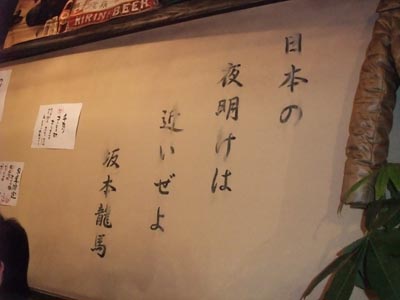 日本の
夜明けは
近いぜよ
坂本龍馬
KIRIN BEER